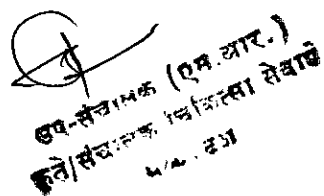 उप-संचालक (एम.आर.)
कृते/संचालक चिकित्सा सेवायें